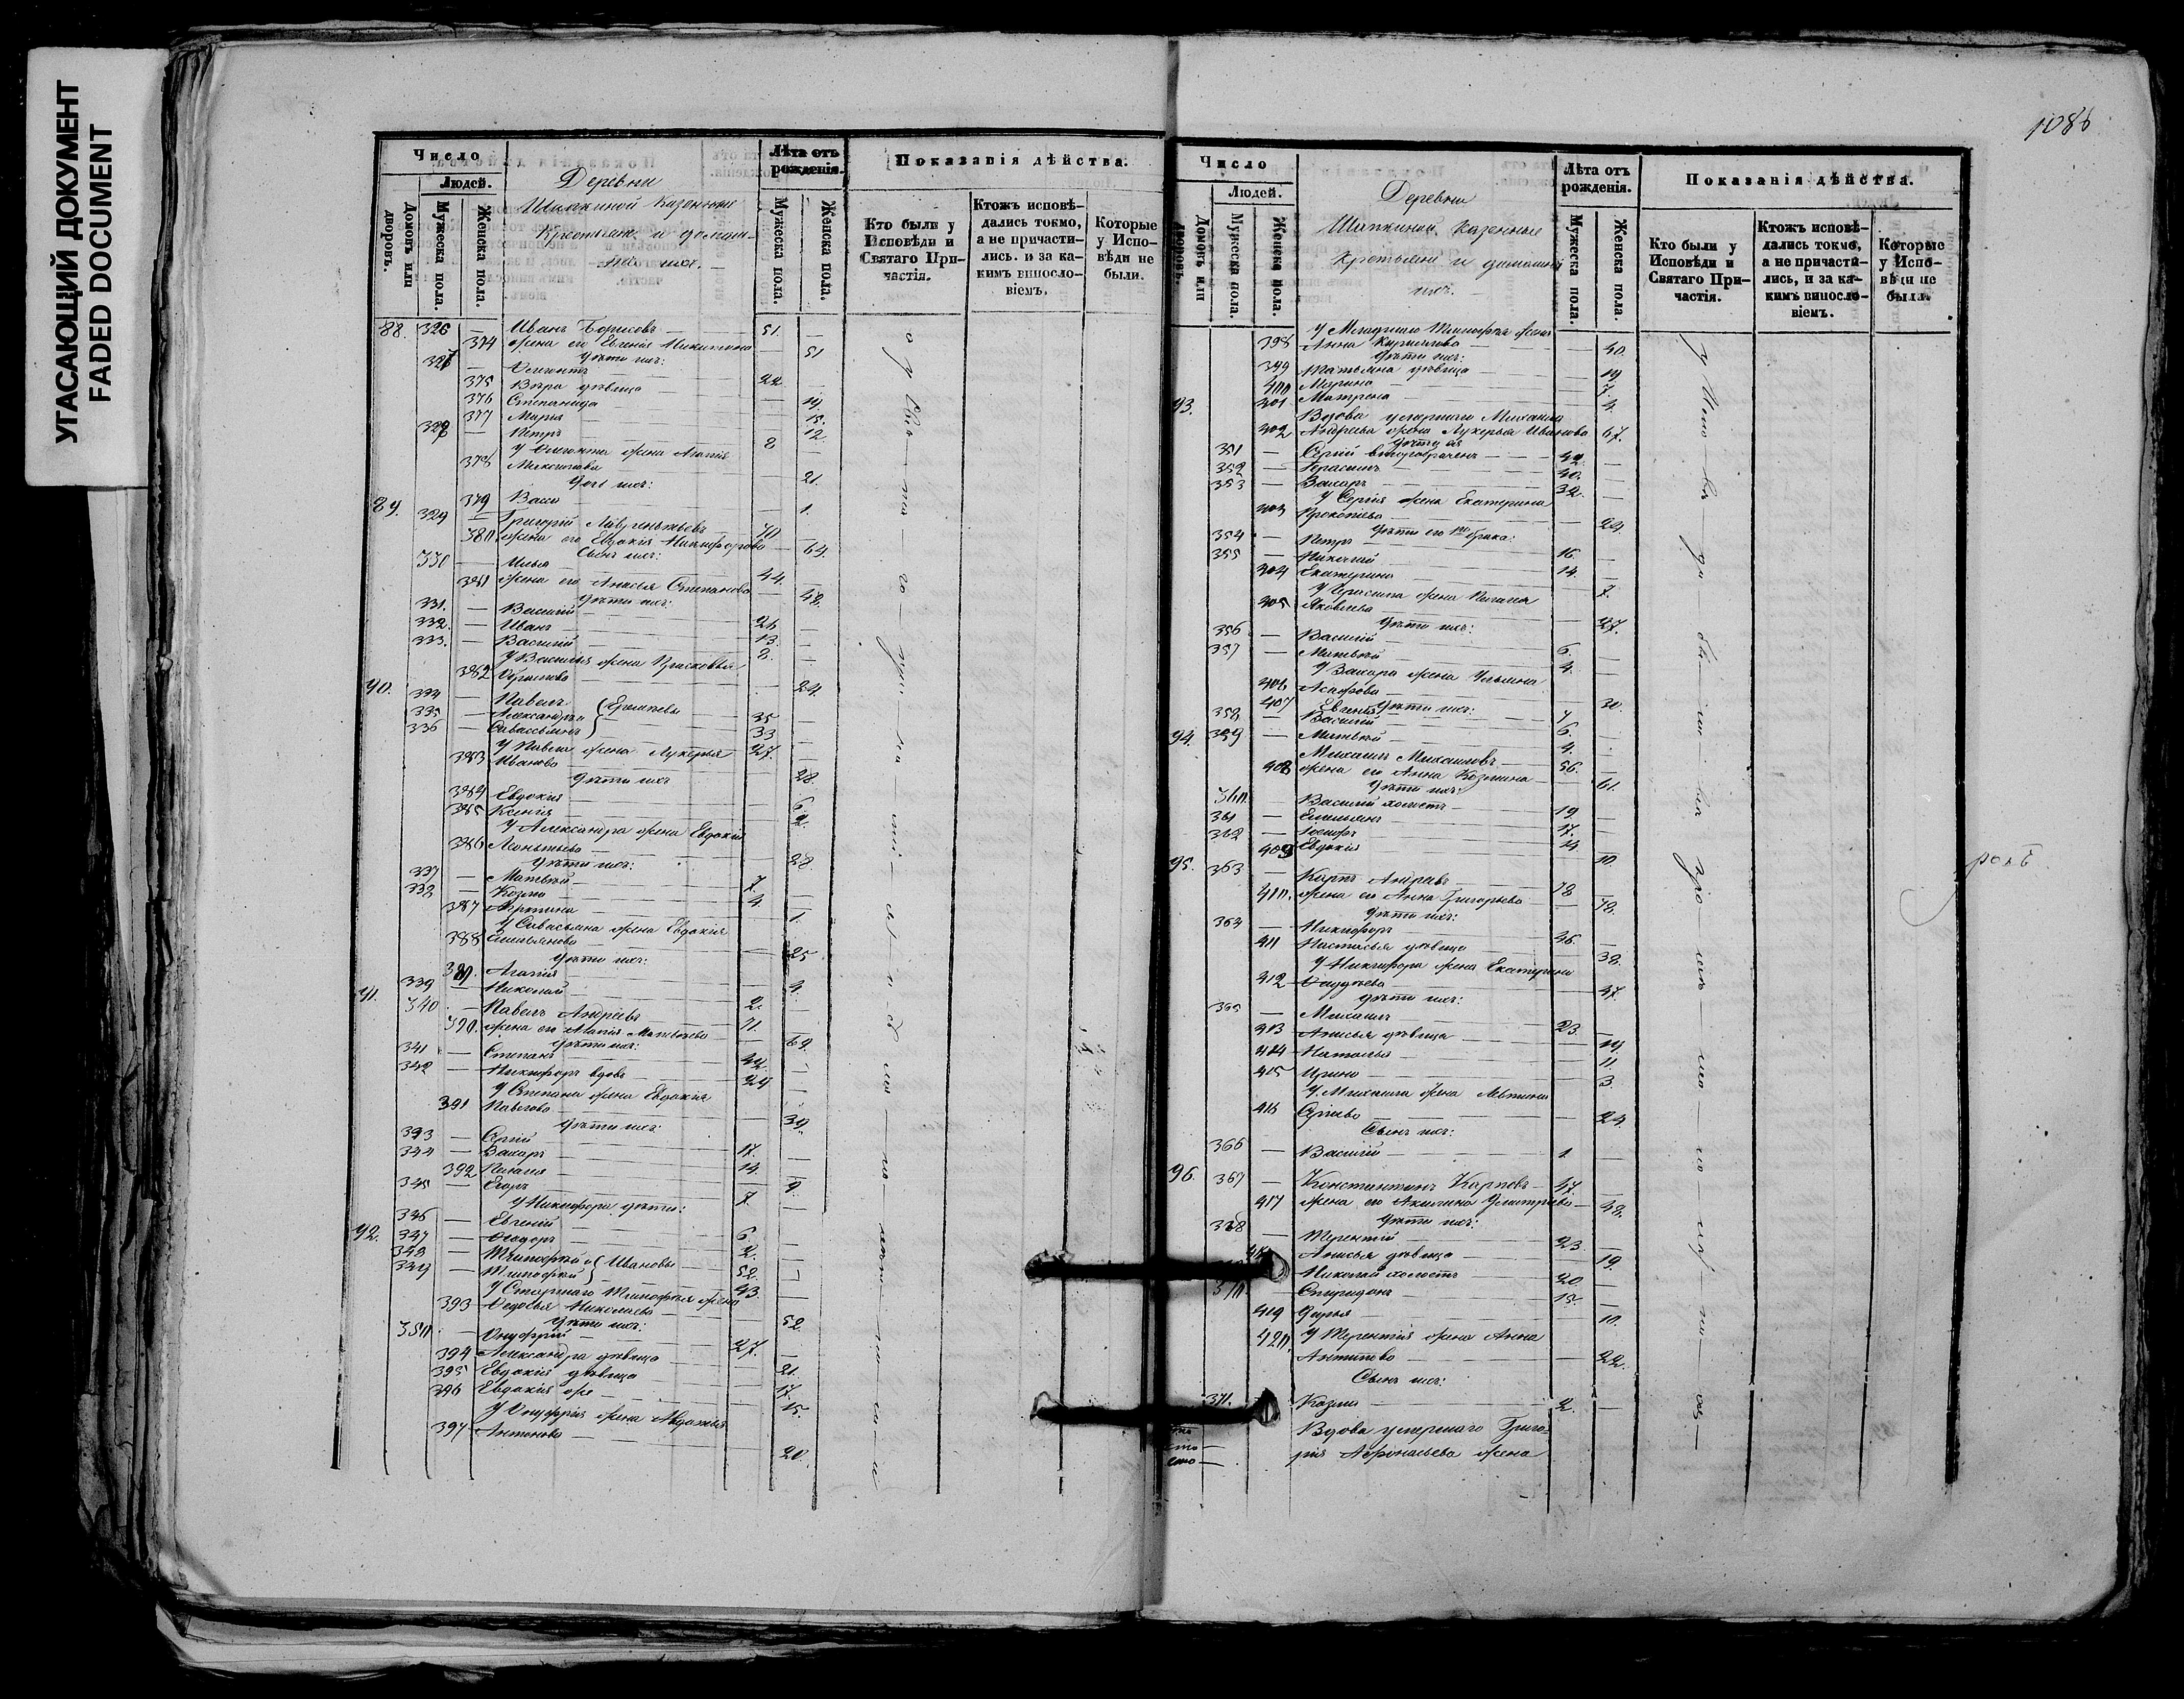 УГАСАЮЩИЙ ДОКУМЕНТ
FADED DOCUMENT
Число
Людей.
Домовъ или дворовъ.
Мужеска пола.
Женска пола.
Деревни
Шапкиной Казенные
Крестьяне и домаш-
ніе ихъ.
Лѣта отъ рожденія.
Мужеска пола.
Женска пола.
Показанія дѣйства.
Кто были у Исповѣди и Святаго При-частія.
Ктожъ исповѣ-дались токмо, а не причасти-лись. и за ка-кимъ винословіемъ.
Которые у Испо-вѣди не были.
88. 326 — Иванъ Борисовъ 51.
374 жена его Евгенія Никитина 51
Дѣти ихъ:
327 —
375 Вѣра дѣвица
376 Степанида 19
377 Марья 15.
328 — Петръ 12.
8
жена Агапія
378
21.
379 Васса 1.
89. 329 — Григорій Лаврентьевъ 70
380. жена его Евдокія Никифорова 64.
Сынъ ихъ:
330 — Илья 44.
381 жена его Анисья Степанова 48.
Дѣти ихъ:
331. — Василій 21
332. — Иванъ 13.
333. — Василій 8.
У Василья жена Прасковья
382 24.
90. 334 — Павелъ 35
335 — Александръ и 33
336 — Савассьянъ 27.
У Павла жена Лукерья
383 Иванова 28
Дѣти ихъ
384 Евдокія 6.
385 Ксенія 2.
У Александра жена Евдокія
386 Леонтьева 28
Дѣти ихъ:
337 — Матвѣй 7.
338 — Козма 4.
387 1.
У Савасьяна жена Евдокія
388 Емельянова 25
Дѣти ихъ:
389. Агапія 4.
339 — Николай 2.
91. 340 — Павелъ Андреевъ 71.
390. жена его Агапія Матвѣева 69.
Дѣти ихъ:
341 — Степанъ 42.
342 — Никифоръ вдовъ 24
У Степана жена Евдокія
391 Павлова 39.
Дѣти ихъ:
343 — Сергій 17.
344 — Захаръ 14.
392 Пелагея 9.
345 — Егоръ 7.
У Никифора дѣти:
346 — Евгеній 6.
347 — Ѳеодоръ 2.
92. 348 — Тимофей и Ивановы 52.
349 — Тимофей 43.
У Старшаго Тимофея жена
393 Ѳедосья Николаева 52.
Дѣти ихъ:
350. — Онуфрій 27.
394 Александра дѣвица 21.
395 Евдокія дѣвица 17.
396 Евдокія же 15.
У Онуфрія жена Авдотья
397 Антонова 20.
1086
Число
Людей.
Домовъ или дворовъ.
Мужеска пола.
Женска пола.
Деревни
Шапкиной, Казенные
Крестьяне и домашніе
ихъ.
Лѣта отъ рожденія.
Мужеска пола.
Женска пола.
Показанія дѣйства.
Кто были у Исповѣди и Святаго При-частія.
Ктожъ исповѣ-дались токмо, а не причасти-лись, и за ка-кимъ винословіемъ.
Которые у Испо-вѣди не были.
У Младшаго Тимофея жена
398 Анна Кириллова 40.
Дѣти ихъ:
399 Татьяна дѣвица 19
400 Марина 7.
401 Матрена 4.
93. Вдова умершаго Михаила
402 Андреева жена Лукерья Иванова 67.
Дѣти ея
351 — Сергій второбраченъ 42.
352 — Герасимъ 40.
353 — Захаръ 32.
У Сергія жена Екатерина
403 Прокопіева 24.
Дѣти его 1го брака:
354 — Петръ 16.
355 — Николай 14.
404 Екатерина 7.
У Герасима жена Пелагея
405 Яковлева 27.
Дѣти ихъ:
356 — Василій 6.
357 — Матвѣй 4.
У Захара жена Ульяна
406 Асафова 30.
Дѣти ихъ:
407 Евгенія
358 — Василій 6.
359 — Матвѣй 4.
94. Михаилъ Михаиловъ 56.
408 жена его Анна Козмина 61.
Дѣти ихъ:
360. — Василій холостъ 19
361 — Емельянъ 17.
362 — Іосифъ 14.
409 Евдокія 10
95. 363 — Карпъ Андреевъ 78
410. жена его Анна Григорьева 78.
Дѣти ихъ:
364 — Никифоръ 46.
411 Настасья дѣвица 38.
У Никифора жена Екатерина
412 47.
Дѣти ихъ:
365 — Михаилъ 23.
413 Анисья дѣвица 19.
414 Наталья 11.
415 Ирина 3.
У Михаила жена
416 24.
Сынъ ихъ:
366 — Василій 1
96. 367 — Константинъ Карповъ 47.
417 жена его Акилина Дмитріева 48.
Дѣти ихъ:
368 — Терентій 23.
Анисья дѣвица 19.
Николай холостъ 20
Спиридонъ 15.
419 Дарья 10.
420. У Терентія жена Анна
Антипова 22.
Сынъ ихъ:
371. Козма 2.
Вдова умершаго Григо-
рія Афонасьева жена